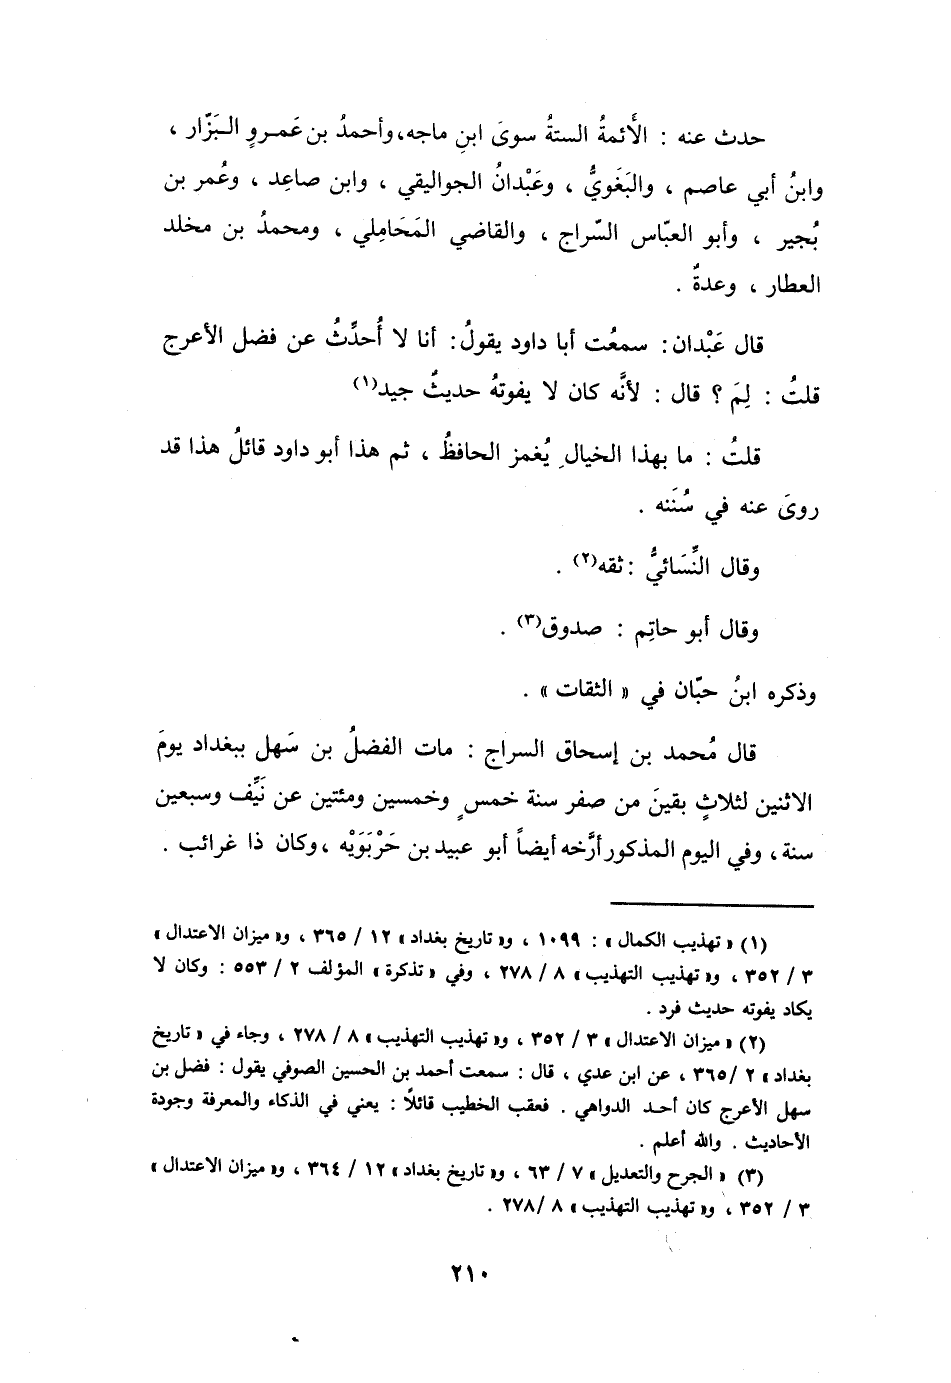 حدث عنه : الأَئمةُ الستةُ سوىَ ابنِ ماجه، وأحمدُ بن عَمـروٍ البَزّار ،
وابنُ أبي عاصم ، والبَغَويُّ ، وعَبْدانُ الجواليقي ، وابن صاعِد ، وعُمر بن
بُجير ، وأبو العبّاس السّراج ، والقاضي المَحَامِلي ، ومحمدُ بن مخلد
العطار ، وعدةٌ .
قال عَبْدان: سمعُت أبا داود يقولُ: أنا لا أُحدِّثُ عن فضل الأعرج
قلتُ : لِمَ ؟ قال : لأنَّه كان لا يفوتهُ حديثٌ جيد(١)
قلتُ : ما بهذا الخيالِ يُغمز الحافظُ ، ثم هذا أبو داود قائلُ هذا قد
روىَ عنه في سُنَنه .
وقال النَّسَائيُّ : ثقه(٢) .
وقال أبو حاتِم : صدوق(٣) .
وذكره ابنُ حبّان في « الثقات » .
قال مُحمد بن إسحاق السراج : مات الفضلُ بن سَهل ببغداد يومَ
الاثنين لثلاثٍ بقينَ من صفر سنة خمسٍ وخمسين ومئتين عن نَيِّف وسبعين
سنة ، وفي اليوم المذكور أرَّخه أيضاً أبو عبيد بن حَرْبَوَيْه ، وكان ذا غرائب .
(١) « تهذيب الكمال » : ١٠٩٩ ، و« تاريخ بغداد » ١٢ / ٣٦٥ ، و« ميزان الاعتدال »
٣ / ٣٥٢ ، و« تهذيب التهذيب » ٨ / ٢٧٨ ، وفي « تذكرة » المؤلف ٢ / ٥٥٣ : وكان لا
يكاد يفوته حديث فرد .
(٢) « ميزان الاعتدال » ٣ / ٣٥٢ ، و« تهذيب التهذيب » ٨ / ٢٧٨ ، وجاء في « تاريخ
بغداد » ٢ /٣٦٥ ، عن ابن عدي ، قال : سمعت أحمد بن الحسين الصوفي يقول : فضل بن
سهل الأعرج كان أحـد الدواهي . فعقب الخطيب قائلاً : يعني في الذكاء والمعرفة وجودة
الأحاديث . والله أعلم .
(٣) « الجرح والتعديل » ٧ / ٦٣ ، و« تاريخ بغداد » ١٢ / ٣٦٤ ، و« ميزان الاعتدال »
٣ / ٣٥٢ ، و« تهذيب التهذيب » ٨ /٢٧٨ .
٢١٠